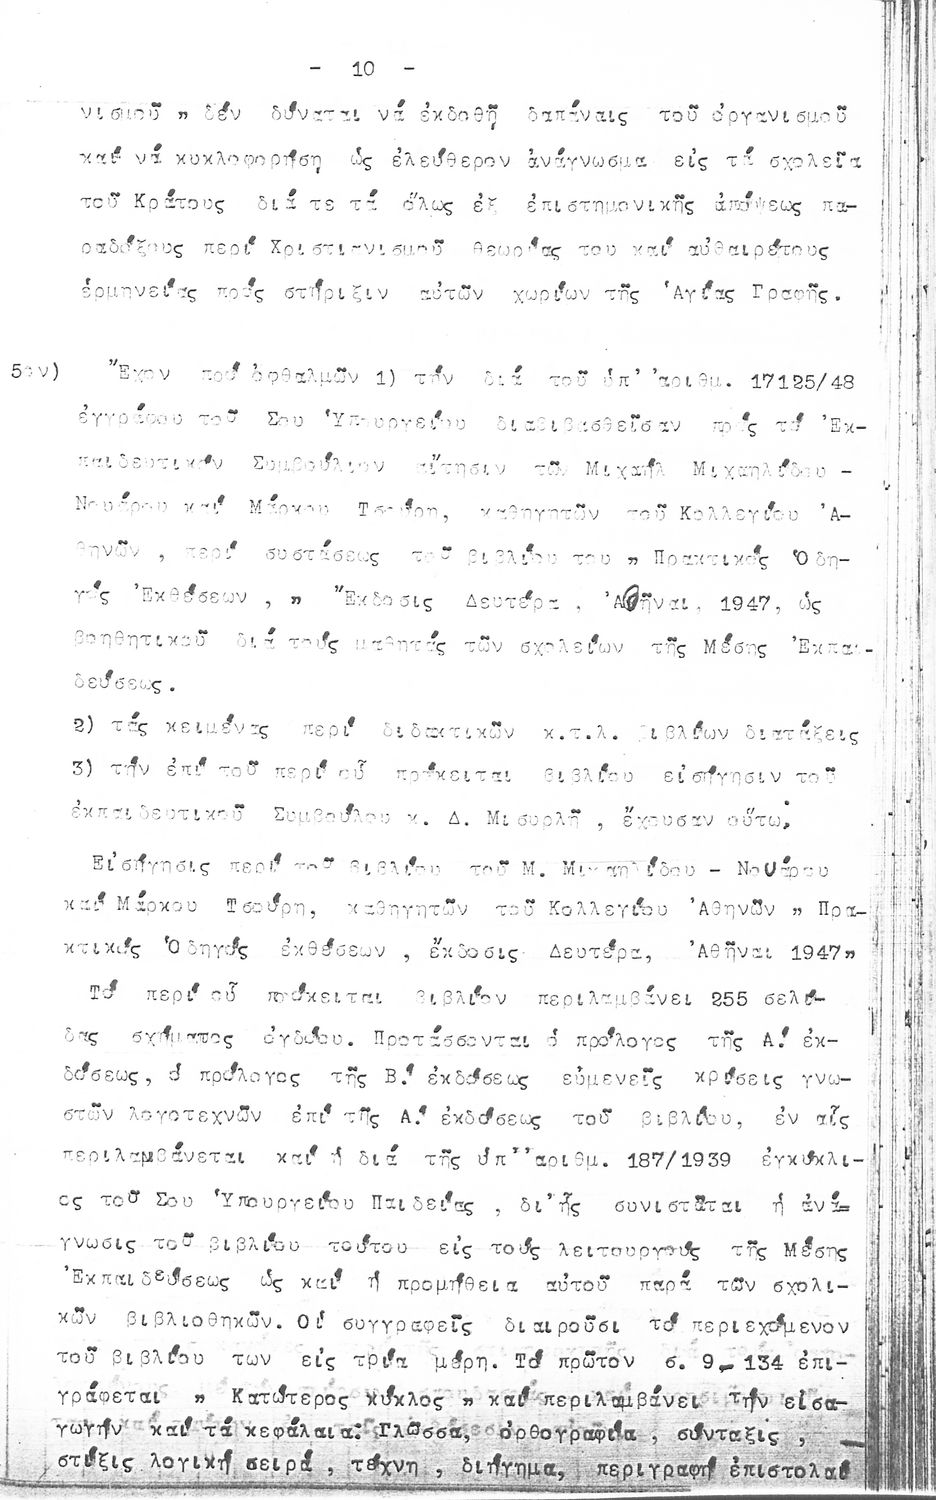 - 10 -
νισμοῦ „ δέν δύναται νά ἐκδοθῇ δαπάναις τοῦ ὀργανισμοῦ
καί νά κυκλοφορήση ὡς ἐλεύθερον ἀνάγνωσμα εἰς τά σχολεῖα
τοῦ Κράτους διά τε τά ὅλως ἐξ ἐπιστημονικῆς ἀπόψεως πα-
ραδόξους περί Χριστιανισμοῦ θεωρίας του καί αὐθαιρέτους
ἑρμηνείας πρός στήριξιν αὐτῶν χωρίων τῆς Ἁγίας Γραφῆς.
5ον) Ἔχον πρό ὀφθαλμῶν 1) τήν διά τοῦ ὑπ' ἀριθμ. 17125/48
ἐγγράφου τοῦ Σου Ὑπουργείου διαβιβασθεῖσαν πρός τό Ἐκ-
παιδευτικόν Συμβούλιον αἴτησιν τῶν Μιχαήλ Μιχαηλίδου -
Νουάρου καί Μάρκου Τσούρη, καθηγητῶν τοῦ Κολλεγίου Ἀ-
θηνῶν , περί συστάσεως τοῦ βιβλίου του „ Πρακτικός Ὁδη-
γός Ἐκθέσεων , „ Ἔκδοσις Δευτέρα , Ἀθῆναι, 1947, ὡς
βοηθητικοῦ διά τούς μαθητάς τῶν σχολείων τῆς Μέσης Ἐκπαι-
δεύσεως.
2) τάς κειμένας περί διδακτικῶν κ.τ.λ. βιβλίων διατάξεις
3) τήν ἐπί τοῦ περί οὗ πρόκειται βιβλίου εἰσήγησιν τοῦ
ἐκπαιδευτικοῦ Συμβούλου κ. Δ. Μισυρλῆ , ἔχουσαν οὕτω;
Εἰσήγησις περί τοῦ βιβλίου τοῦ Μ. Μιχαηλίδου - Νουάρου
καί Μάρκου Τσούρη, καθηγητῶν τοῦ Κολλεγίου Ἀθηνῶν „ Πρα-
κτικός Ὁδηγός ἐκθέσεων , ἔκδοσις Δευτέρα, Ἀθῆναι 1947„
Τό περί οὗ πρόκειται βιβλίον περιλαμβάνει 255 σελί-
δας σχήματος ὀγδόου. Προτάσσονται ὁ πρόλογος τῆς Α.' ἐκ-
δόσεως, ὁ πρόλογος τῆς Β.' ἐκδόσεως εὐμενεῖς κρίσεις γνω-
στῶν λογοτεχνῶν ἐπί τῆς Α.' ἐκδόσεως τοῦ βιβλίου, ἐν αἷς
περιλαμβάνεται καί ἡ διά τῆς ὑπ'' ἀριθμ. 187/1939 ἐγκύκλι-
ος τοῦ Σου Ὑπουργείου Παιδείας , δι' ἧς συνιστᾶται ἡ ἀνά=
γνωσις τοῦ βιβλίου τούτου εἰς τούς λειτουργούς τῆς Μέσης
Ἐκπαιδεύσεως ὡς καί ἡ προμήθεια αὐτοῦ παρά τῶν σχολι-
κῶν βιβλιοθηκῶν. Οἱ συγγραφεῖς διαιροῦσι τό περιεχόμενον
τοῦ βιβλίου των εἰς τρία μέρη. Τό πρῶτον σ. 9 - 134 ἐπι-
γράφεται „ Κατώτερος κύκλος „ καί περιλαμβάνει τήν εἰσα-
γωγήν καί τά κεφάλαια: Γλῶσσα, ὀρθογραφία , σύνταξις ,
στίξις λογική σειρά , τέχνη , διήγημα, περιγραφή ἐπιστολαί